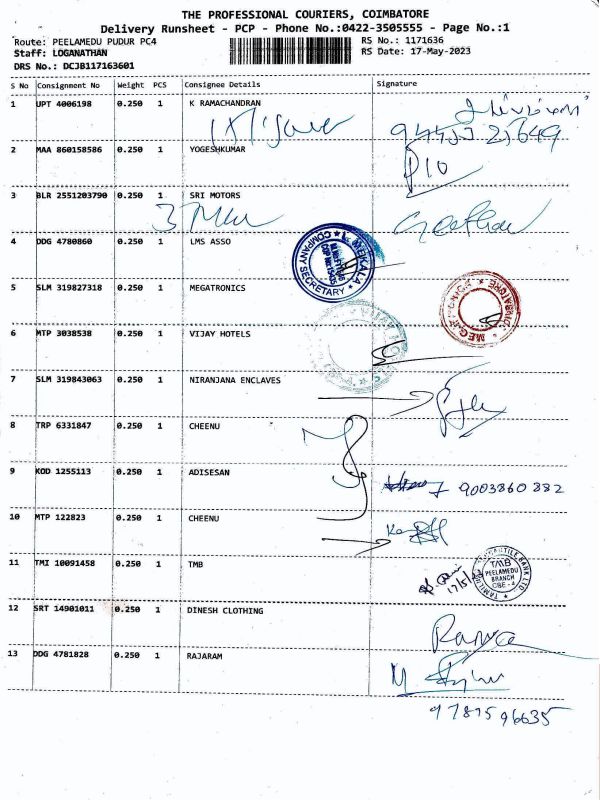 THE PROFESSIONAL COURIERS, COIMBATORE
Delivery Runsheet - PCP - Phone No.:0422-3505555 - Page No.:1
Route: PEELAMEDU PUDUR PC4
RS No.: 1171636
Staff: LOGANATHAN
RS Date: 17-May-2023
DRS No.: DCJB117163601
S No Consignment No Weight PCS Consignee Details Signature
1 UPT 4006198 0.250 1 K RAMACHANDRAN
2 MAA 860158586 0.250 1 YOGESHKUMAR
P10
3 BLR 2551203790 0.250 1 SRI MOTORS
4 DDG 4780860 0.250 1 LMS ASSO
MEKALA
COMPANY SECRETARY
5 SLM 319827318 0.250 1 MEGATRONICS
6 MTP 3038538 0.250 1 VIJAY HOTELS
7 SLM 319843063 0.250 1 NIRANJANA ENCLAVES
8 TRP 6331847 0.250 1 CHEENU
9 KOD 1255113 0.250 1 ADISESAN
9003860882
10 MTP 122823 0.250 1 CHEENU
11 TMI 10091458 0.250 1 TMB
TMB
PEELAMEDU
BRANCH
CBE - 4
12 SRT 14901011 0.250 1 DINESH CLOTHING
Ramya
13 DDG 4781828 0.250 1 RAJARAM
9787596635